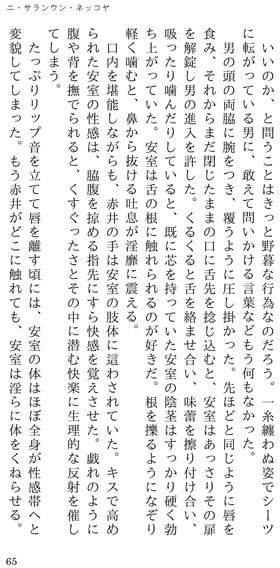 ニ・サランウン・ネッコヤ
いいのか、と問うことはきっと野暮な行為なのだろう。一糸纏わぬ姿でシーツ
に転がっている男に、敢えて問いかける言葉などもう何もなかった。
男の頭の両脇に腕をつき、覆うように圧し掛かった。先ほどと同じように唇を
食み、それからまだ閉じたままの口に舌先を捻じ込むと、安室はあっさりその扉
を解錠し男の進入を許した。くるくると舌を絡ませ合い、味蕾を擦り付け合い、
吸ったり噛んだりしていると、既に芯を持っていた安室の陰茎はすっかり硬く勃
ち上がっていた。安室は舌の根に触れられるのが好きだ。根を擽るようになぞり
軽く噛むと、鼻から抜ける吐息が淫靡に震える。
口内を堪能しながらも、赤井の手は安室の肢体に這わされていた。キスで高め
られた安室の性感は、脇腹を掠める指先にすら快感を覚えさせた。戯れのように
腹や背を撫でられると、くすぐったさとその中に潜む快楽に生理的な反射を催し
てしまう。
たっぷりリップ音を立てて唇を離す頃には、安室の体はほぼ全身が性感帯へと
変貌してしまった。もう赤井がどこに触れても、安室は淫らに体をくねらせる。
65